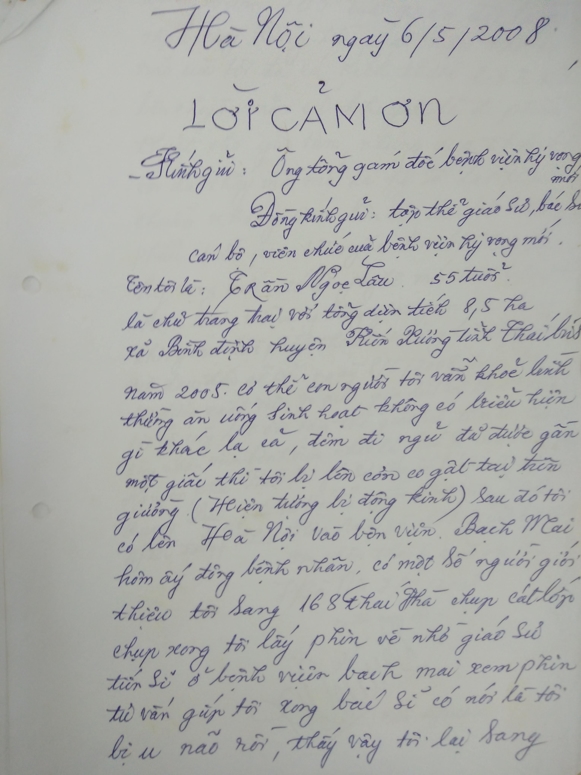 Hà Nội ngày 6/5/2008
LỜI CẢM ƠN
- Kính gửi: Ông tổng gám đốc bệnh viện hy vọng
mới
Đồng kính gửi: tập thể giáo sư, bác sĩ
cán bộ, viên chức của bệnh viện hy vọng mới.
Tên tôi là: Trần Ngọc Lâu. 55 tuổi.
là chủ trang trại với tổng diện tích 8,5 ha
xã Bình định huyện Kiến Xương tỉnh Thái bình
năm 2005. cơ thể con người tôi vẫn khoẻ bình
thường ăn uống sinh hoạt không có triệu hiện
gì khác lạ cả, đêm đi ngủ đã được gần
một giấc thì tôi bị lên cơn co giật tại trên
giường (Hiện tượng bị động kinh) sau đó tôi
có lên Hà Nội vào bện viện Bạch Mai
hôm ấy đông bệnh nhân, có một số người giới
thiệu tôi sang 168 thái Hà chụp cắt lớp
chụp xong tôi lấy phin về nhờ giáo sư
tiến sĩ ở bệnh viện bạch mai xem phin
tư vấn giúp tôi xong bác sĩ có nói là tôi
bị u não rồi, thấy vậy tôi lại sang